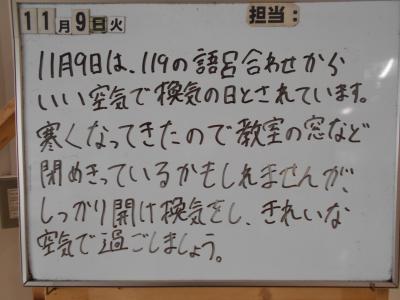 11月9日火 担当:
11月9日は、119の語呂合わせから
いい空気で換気の日とされています。
寒くなってきたので教室の窓など
閉めきっているかもしれませんが、
しっかり開け換気をし、きれいな
空気で過ごしましょう。